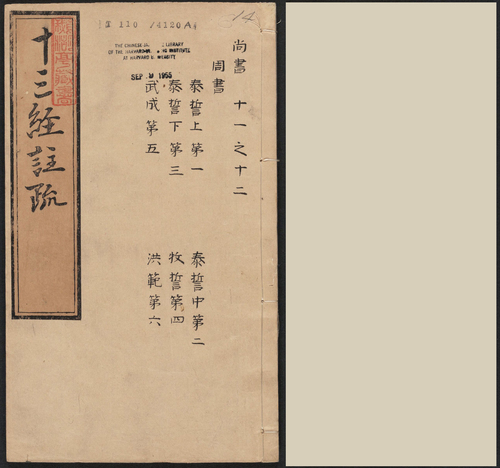 110 /4120A
14
THE CHINESE LIBRARY
OF THE HARVARD INSTITUTE
AT HARVARD UNIVERSITY
SEP 9 1955
十三經註疏
尚書 十一之十二
周書
泰誓上第一 泰誓中第二
泰誓下第三 牧誓第四
武成第五 洪範第六